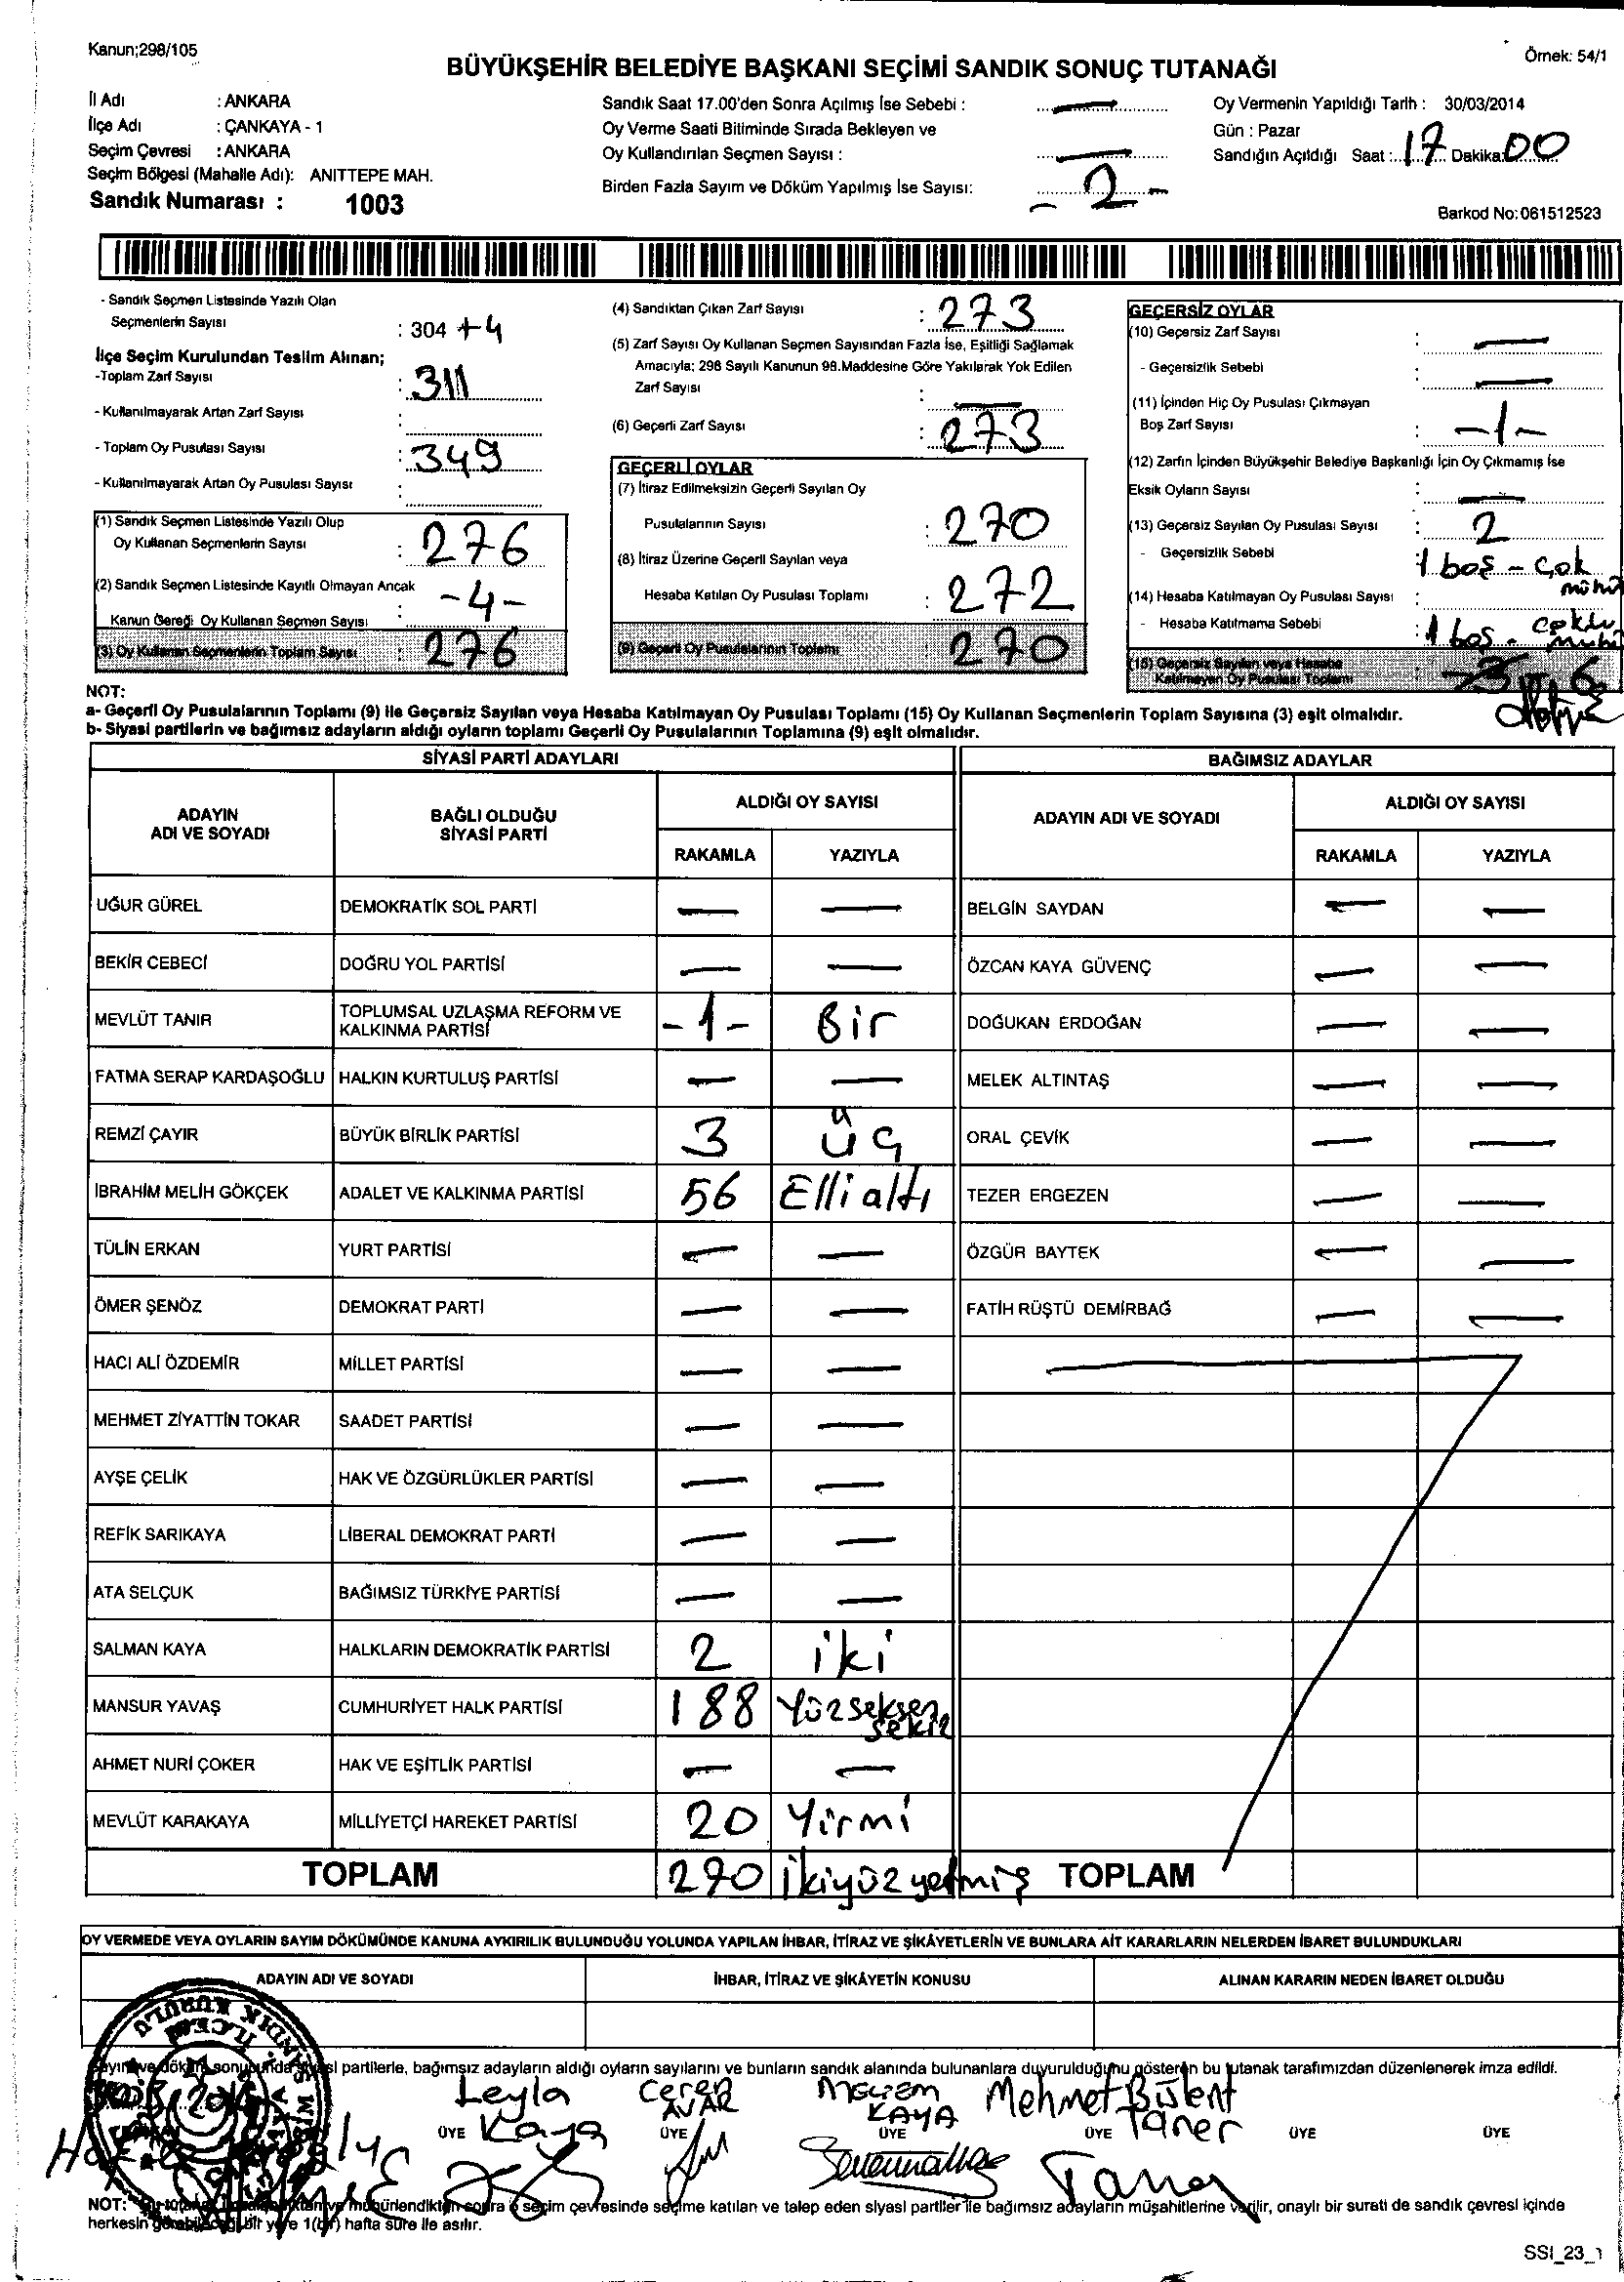 Kanun;298/105
Örnek: 54/1
BÜYÜKŞEHİR BELEDİYE BAŞKANI SEÇİMİ SANDIK SONUÇ TUTANAĞI
İl Adı : ANKARA
İlçe Adı : ÇANKAYA - 1
Seçim Çevresi : ANKARA
Seçim Bölgesi (Mahalle Adı): ANITTEPE MAH.
Sandık Numarası : 1003
Sandık Saat 17.00'den Sonra Açılmış İse Sebebi : —
Oy Verme Saati Bitiminde Sırada Bekleyen ve
Oy Kullandırılan Seçmen Sayısı : —
Birden Fazla Sayım ve Döküm Yapılmış İse Sayısı: - 2 -
Oy Vermenin Yapıldığı Tarih : 30/03/2014
Gün : Pazar
Sandığın Açıldığı Saat : 17 Dakika: 00
Barkod No:061512523
- Sandık Seçmen Listesinde Yazılı Olan
Seçmenlerin Sayısı : 304 +4
İlçe Seçim Kurulundan Teslim Alınan;
-Toplam Zarf Sayısı : 311
- Kullanılmayarak Artan Zarf Sayısı :
- Toplam Oy Pusulası Sayısı : 349
- Kullanılmayarak Artan Oy Pusulası Sayısı :
(1) Sandık Seçmen Listesinde Yazılı Olup
Oy Kullanan Seçmenlerin Sayısı : 276
(2) Sandık Seçmen Listesinde Kayıtlı Olmayan Ancak
Kanun Gereği Oy Kullanan Seçmen Sayısı : -4-
(3) Oy Kullanan Seçmenlerin Toplam Sayısı : 276
(4) Sandıktan Çıkan Zarf Sayısı : 273
(5) Zarf Sayısı Oy Kullanan Seçmen Sayısından Fazla İse, Eşitliği Sağlamak
Amacıyla; 298 Sayılı Kanunun 98.Maddesine Göre Yakılarak Yok Edilen
Zarf Sayısı : —
(6) Geçerli Zarf Sayısı : 273
GEÇERLİ OYLAR
(7) İtiraz Edilmeksizin Geçerli Sayılan Oy
Pusulalarının Sayısı : 270
(8) İtiraz Üzerine Geçerli Sayılan veya
Hesaba Katılan Oy Pusulası Toplamı : 272
(9) Geçerli Oy Pusulalarının Toplamı : 270
GEÇERSİZ OYLAR
(10) Geçersiz Zarf Sayısı : —
- Geçersizlik Sebebi : —
(11) İçinden Hiç Oy Pusulası Çıkmayan
Boş Zarf Sayısı : -1-
(12) Zarfın İçinden Büyükşehir Belediye Başkanlığı İçin Oy Çıkmamış İse
Eksik Oyların Sayısı : —
(13) Geçersiz Sayılan Oy Pusulası Sayısı : 2
- Geçersizlik Sebebi : 1 boş - çok
mühür
(14) Hesaba Katılmayan Oy Pusulası Sayısı :
- Hesaba Katılmama Sebebi : 1 boş - çoklu
(15) Geçersiz Sayılan veya Hesaba
Katılmayan Oy Pusulası Toplamı :
NOT:
a- Geçerli Oy Pusulalarının Toplamı (9) ile Geçersiz Sayılan veya Hesaba Katılmayan Oy Pusulası Toplamı (15) Oy Kullanan Seçmenlerin Toplam Sayısına (3) eşit olmalıdır.
b- Siyasi partilerin ve bağımsız adayların aldığı oyların toplamı Geçerli Oy Pusulalarının Toplamına (9) eşit olmalıdır.
SİYASİ PARTİ ADAYLARI
BAĞIMSIZ ADAYLAR
ADAYIN
ADI VE SOYADI
BAĞLI OLDUĞU
SİYASİ PARTİ
ALDIĞI OY SAYISI
RAKAMLA YAZIYLA
ADAYIN ADI VE SOYADI
ALDIĞI OY SAYISI
RAKAMLA YAZIYLA
UĞUR GÜREL DEMOKRATİK SOL PARTİ — — BELGİN SAYDAN — —
BEKİR CEBECİ DOĞRU YOL PARTİSİ — — ÖZCAN KAYA GÜVENÇ — —
MEVLÜT TANIR TOPLUMSAL UZLAŞMA REFORM VE
KALKINMA PARTİSİ -1- Bir DOĞUKAN ERDOĞAN — —
FATMA SERAP KARDAŞOĞLU HALKIN KURTULUŞ PARTİSİ — — MELEK ALTINTAŞ — —
REMZİ ÇAYIR BÜYÜK BİRLİK PARTİSİ 3 üç ORAL ÇEVİK — —
İBRAHİM MELİH GÖKÇEK ADALET VE KALKINMA PARTİSİ 56 Elli altı TEZER ERGEZEN — —
TÜLİN ERKAN YURT PARTİSİ — — ÖZGÜR BAYTEK — —
ÖMER ŞENÖZ DEMOKRAT PARTİ — — FATİH RÜŞTÜ DEMİRBAĞ — —
HACI ALİ ÖZDEMİR MİLLET PARTİSİ — —
MEHMET ZİYATTİN TOKAR SAADET PARTİSİ — —
AYŞE ÇELİK HAK VE ÖZGÜRLÜKLER PARTİSİ — —
REFİK SARIKAYA LİBERAL DEMOKRAT PARTİ — —
ATA SELÇUK BAĞIMSIZ TÜRKİYE PARTİSİ — —
SALMAN KAYA HALKLARIN DEMOKRATİK PARTİSİ 2 iki
MANSUR YAVAŞ CUMHURİYET HALK PARTİSİ 188 Yüzseksen
sekiz
AHMET NURİ ÇOKER HAK VE EŞİTLİK PARTİSİ — —
MEVLÜT KARAKAYA MİLLİYETÇİ HAREKET PARTİSİ 20 Yirmi
TOPLAM 270 ikiyüz yetmiş TOPLAM
OY VERMEDE VEYA OYLARIN SAYIM DÖKÜMÜNDE KANUNA AYKIRILIK BULUNDUĞU YOLUNDA YAPILAN İHBAR, İTİRAZ VE ŞİKÂYETLERİN VE BUNLARA AİT KARARLARIN NELERDEN İBARET BULUNDUKLARI
ADAYIN ADI VE SOYADI İHBAR, İTİRAZ VE ŞİKÂYETİN KONUSU ALINAN KARARIN NEDEN İBARET OLDUĞU
SANDIK KURULU
partilerle, bağımsız adayların aldığı oyların sayılarını ve bunların sandık alanında bulunanlara duyurulduğunu gösteren bu tutanak tarafımızdan düzenlenerek imza edildi.
Leyla Ceren Meryem Mehmet Bülent
Kaya AVAR KAYA Taner
ÜYE ÜYE ÜYE ÜYE ÜYE ÜYE
Taner
NOT: mühürlendikten sonra o seçim çevresinde seçime katılan ve talep eden siyasi partiler ile bağımsız adayların müşahitlerine verilir, onaylı bir sureti de sandık çevresi içinde
herkesin bir yere 1(bir) hafta süre ile asılır.
SSI_23_1